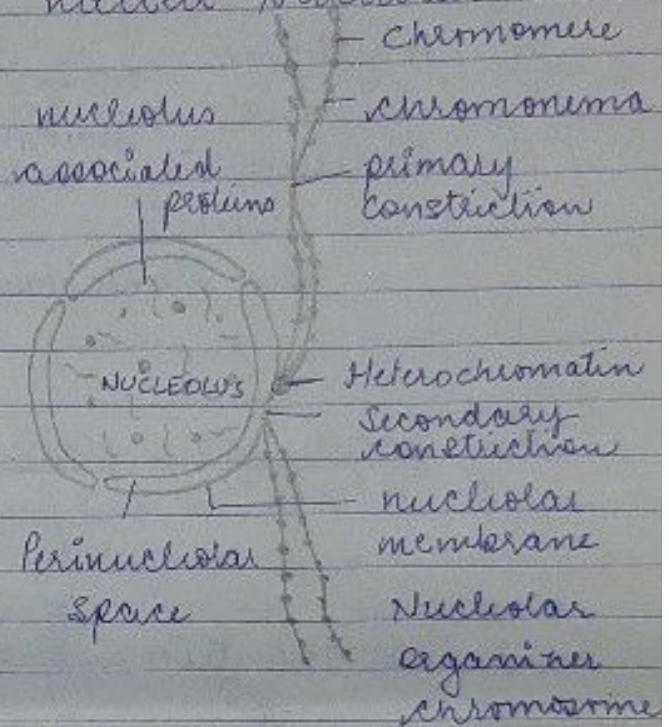 chromomere
nucleolus
associated
proteins
chromonema
primary
constriction
NUCLEOLUS
Heterochromatin
Secondary
constriction
nucleolar
membrane
Perinucleolar
space
Nucleolar
organizer
chromosome